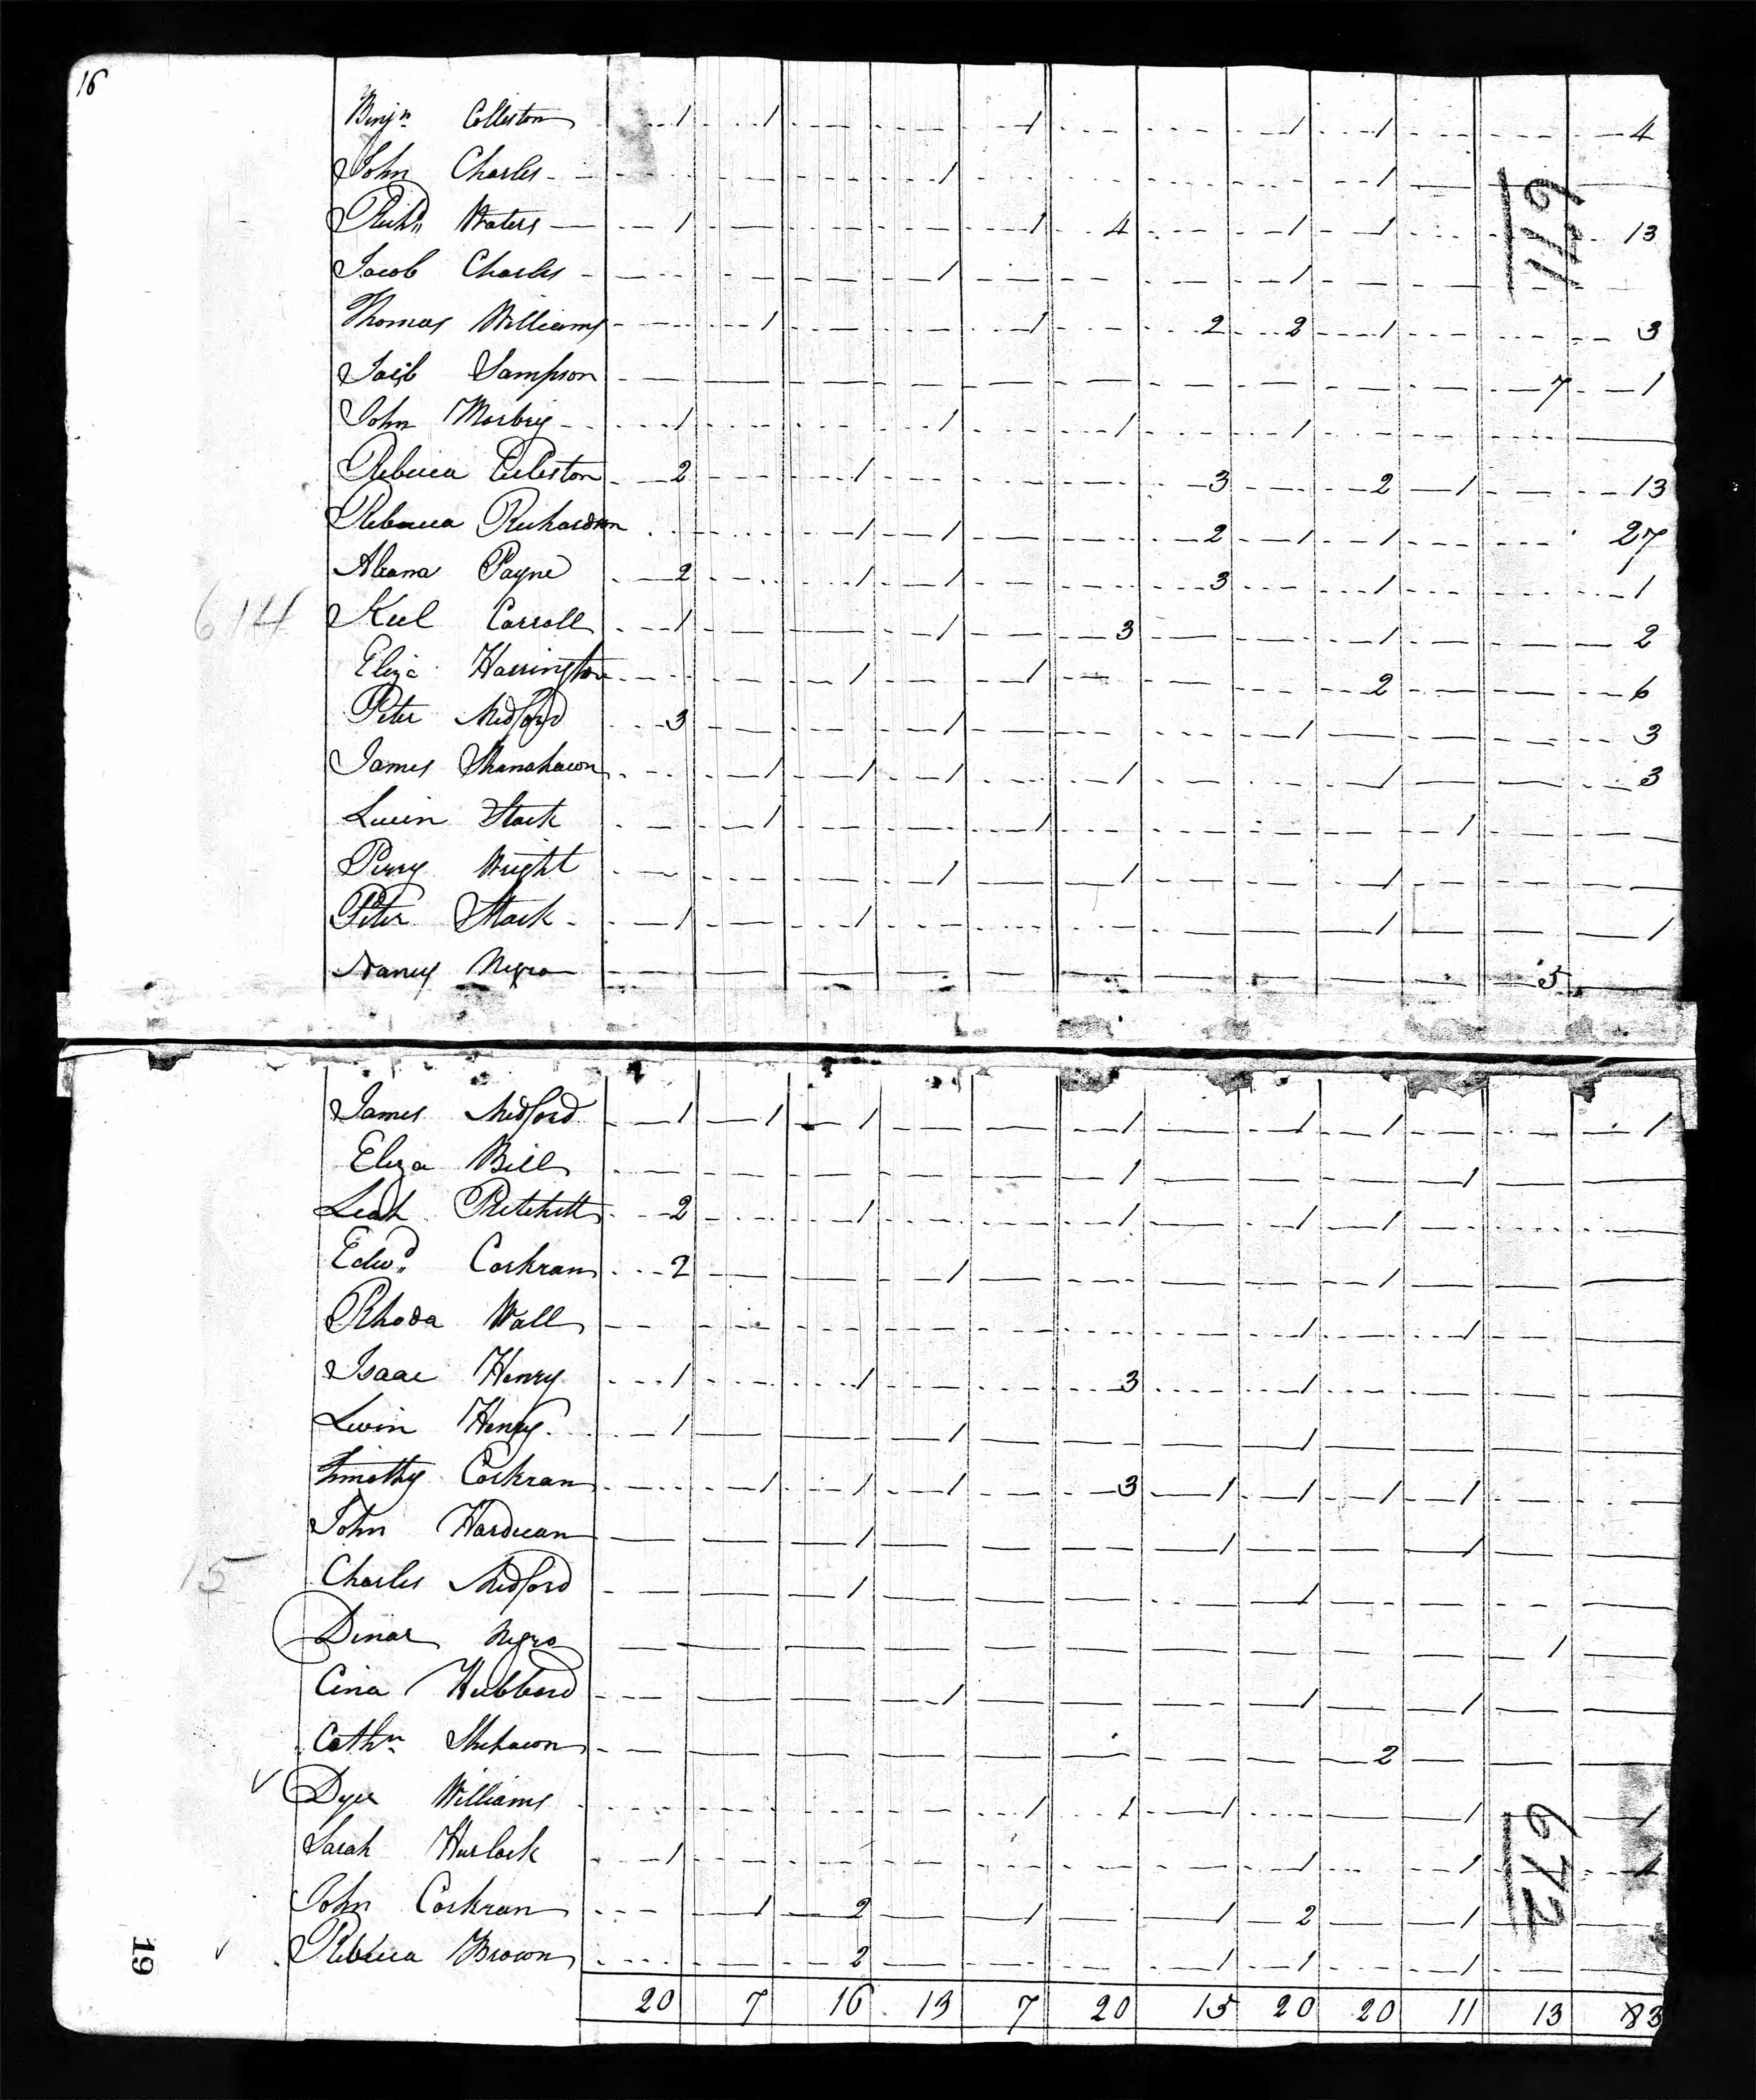 16
Benjn Colleston 1 1 1 1 1 4
John Charles 1 1
Richd Waters 1 1 4 1 1 13
Jacob Charles 1 1
Thomas Williams 1 1 2 2 1 3
Jacob Sampson 7 1
John 1 1 1 1
Rebecca 2 1 3 2 1 13
Rebecca Richardson 1 1 2 1 1 27
Payne 2 1 1 3 1 1
614 Keel Carroll 1 1 3 1 2
Eliza Harrington 1 1 2 6
Peter Medford 3 1 1 3
James Shanahawn 1 1 1 1 1 3
Levin Stack 1 1 1
Perry Wright 1 1 1
Peter Stack 1 1 1 1
Nancy Negro 5
671
James Medford 1 1 1 1 1 1 1
Eliza Bell 1 1
Leah Pritchett 2 1 1 1 1
Edwd Corkran 2 1 1
Rhoda Wall 1 1
Isaac Henry 1 1 3 1
Levin Henry 1 1 1
Timothy Corkran 1 1 1 3 1 1 1 1
John 1 1 1
15 Charles Medford 1 1
Dinar Negro 1
Cina Hubbard 1 1 1
Cathn Shehawn 2
Dyer Williams 1 1 1 1 1
Sarah Hurlock 1 1 1
John Corkran 1 2 1 1 2 1
Rebecca Brown 2 1 1 1
672
19
20 7 16 13 7 20 15 20 20 11 13 83